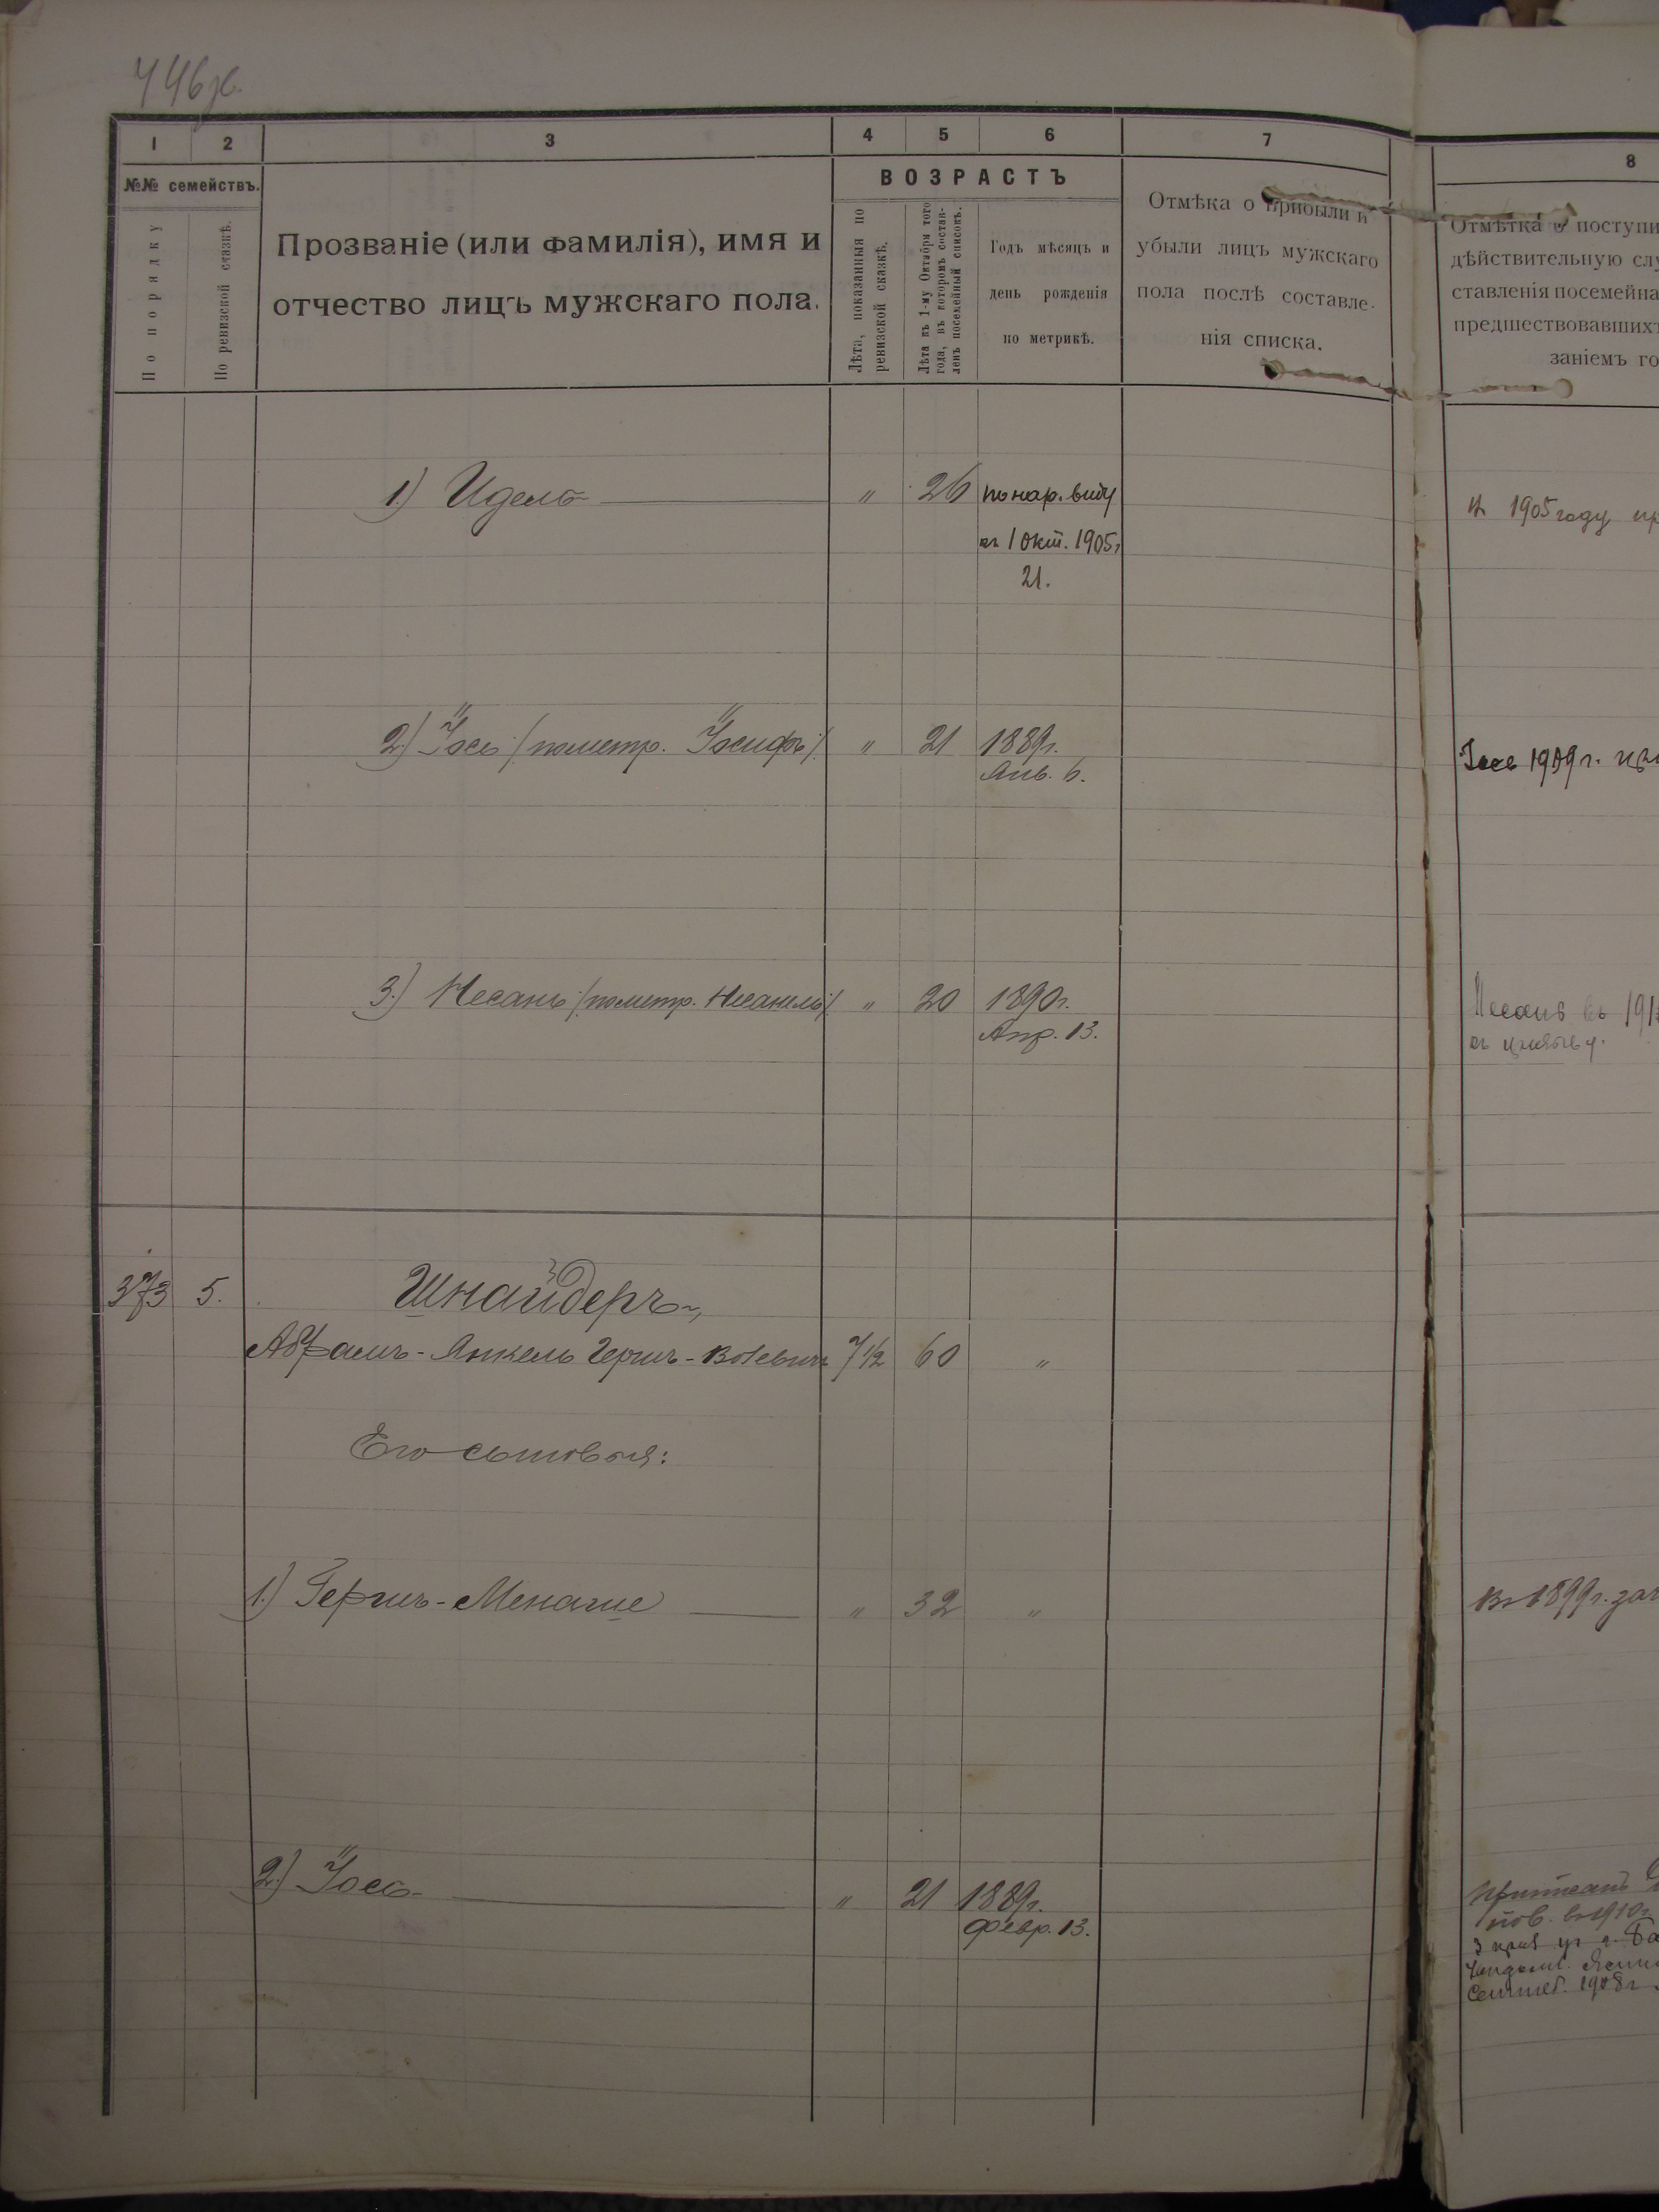 1 2 3 4 5 6 7 8
№№ семействъ.
По порядку
По ревизской сказкѣ.
Прозваніе (или фамилія), имя и
отчество лицъ мужскаго пола.
ВОЗРАСТЪ
Лѣта, показанныя по
ревизской сказкѣ.
Лѣта къ 1-му Октября того
года, въ которомъ состав-
ленъ посемейный списокъ.
Годъ мѣсяцъ и
день рожденія
по метрикѣ.
Отмѣка о прибыли и
убыли лицъ мужскаго
пола послѣ составле-
нія списка.
Отмѣтка о поступи
дѣйствительную слу
ставленія посемейна
предшествовавшихъ
заніемъ го
1) Идель " 26 по нар. виду
къ 1 окт. 1905г
21.
1905 году
2.) Іось /: по метр. Іосифъ :/ " 21 1889г.
Янв. 6.
1909г.
3.) Несань /: по метр. Несанель :/ " 20 1890г.
Апр. 13.
Несань въ 191
373 5. Шнайдеръ,
Абрамъ-Янкель Гершъ-Вольвичъ 7 1/2 60 "
Его сыновья:
1.) Гершъ-Менаше " 32 "
Въ 1899г. зач
2.) Іось " 21 1889г.
Февр. 13.
1910г.
Сентяб. 1908г.